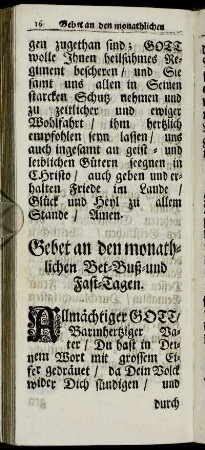 16 Gebet an den monathlichen
gen zugethan sind; GOTT
wolle Ihnen heilsahmes Re-
giment bescheren/ und Sie
samt uns allen in Seinen
starcken Schutz nehmen und
zu zeitlicher und ewiger
Wohlfahrt/ ihm hertzlich
empfohlen seyn lassen/ uns
auch ingesamt an geist- und
leiblichen Gütern seegnen in
Christo/ auch geben und er-
halten Friede im Lande/
Glück und Heyl zu allem
Stande/ Amen.
Gebet an den monath-
lichen Bet-Buß-und
Fast-Tagen.
Allmächtiger GOTT/
Barmhertziger Va-
ter/ Du hast in Dei-
nem Wort mit grossem Ei-
fer gedräuet/ da Dein Volck
wider Dich sündigen/ und
durch